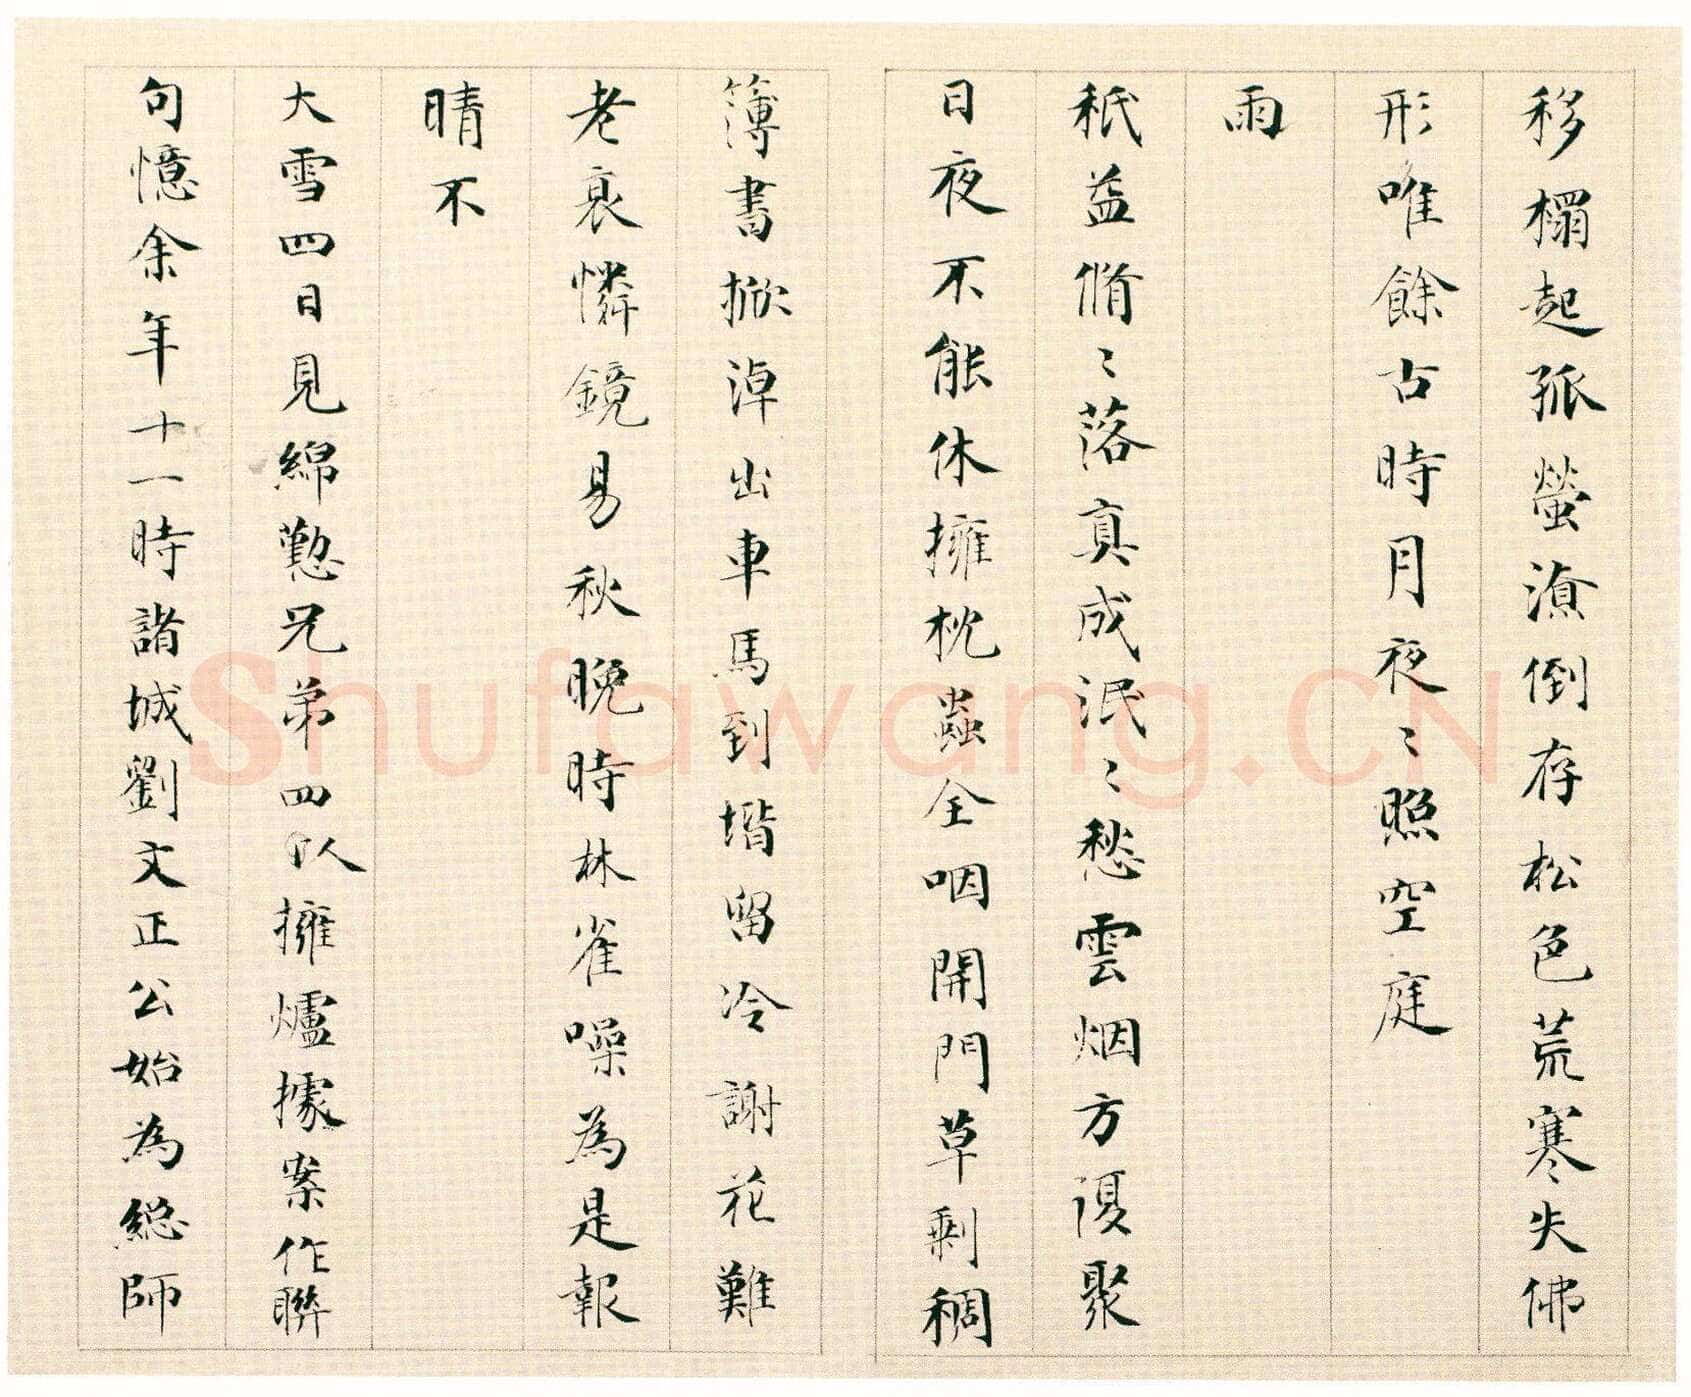 移榻起孤螢滾倒存松色荒寒失佛
形唯餘古時月夜〻照空庭
雨
秖益翛〻落真成泯〻愁雲烟方復聚
日夜不能休擁枕蟲全咽開門草剩稠
簿書掀淖出車馬到堦留冷謝花難
老衰憐鏡易秋晚時林雀噪為是報
晴不
大雪四日見綿懃兄弟四人擁爐據案作聯
句憶余年十一時諸城劉文正公始為総師
Shufawang.CN